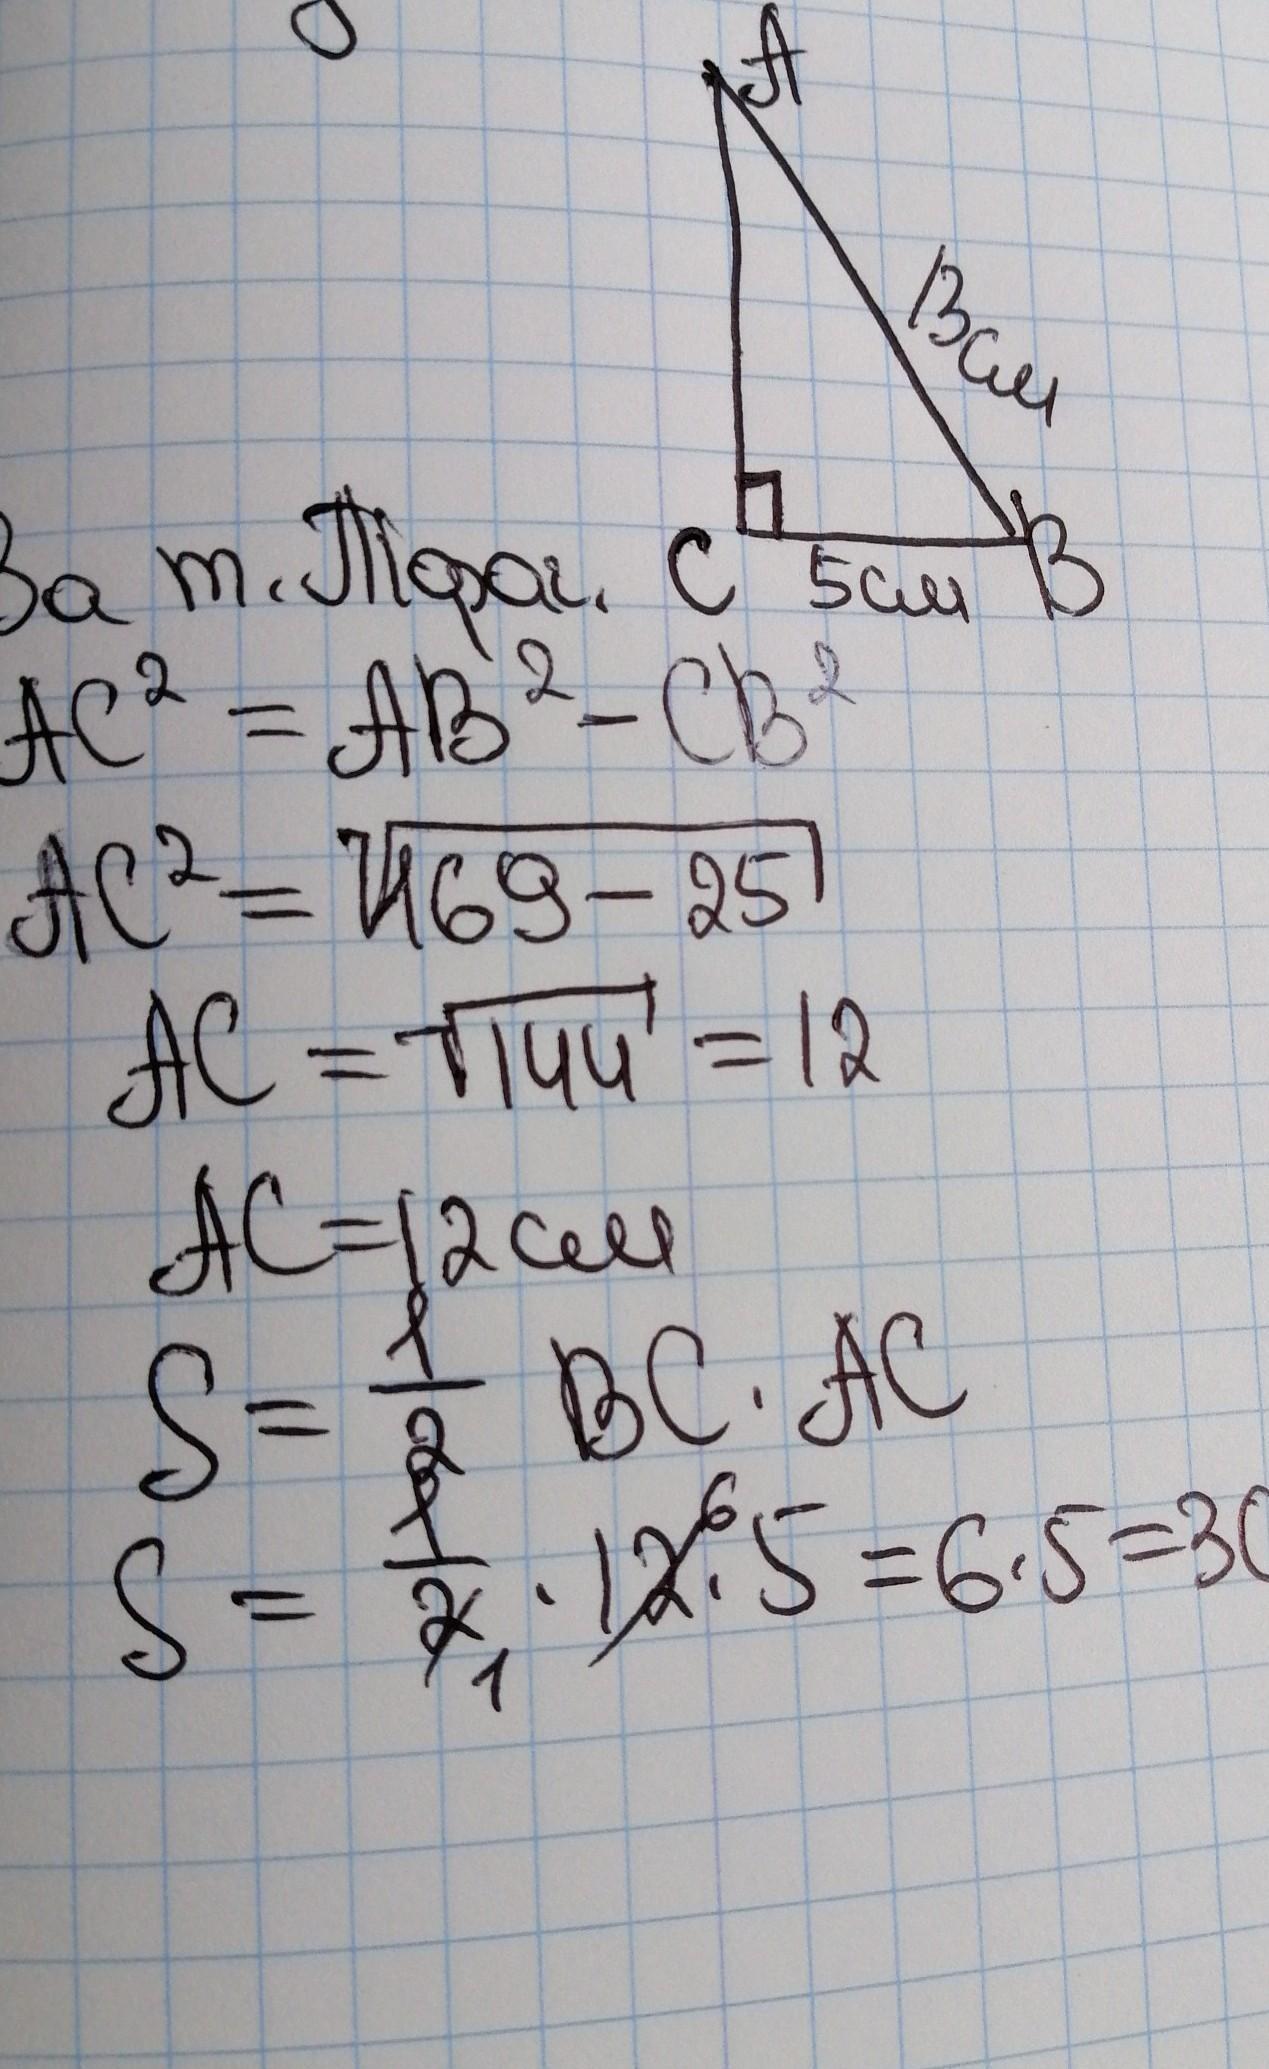 A
13см
За т. Піфаг. C 5см B
AC² = AB² - CB²
AC² = √169 - 25
AC = √144 = 12
AC = 12 см
S = 1/2 BC · AC
S = 1/2 1 · 12 6 · 5 = 6 · 5 = 30